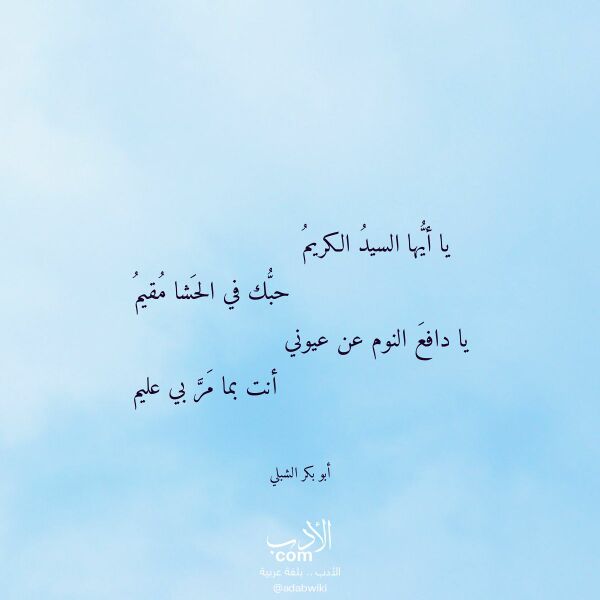 يا أيُّها السيدُ الكريمُ
حبُّك في الحَشا مُقيمُ
يا دافعَ النوم عن عيوني
أنت بما مَرَّ بي عليم
أبو بكر الشبلي
الأدب
com
الأدب .. بلغة عربية
@adabwiki